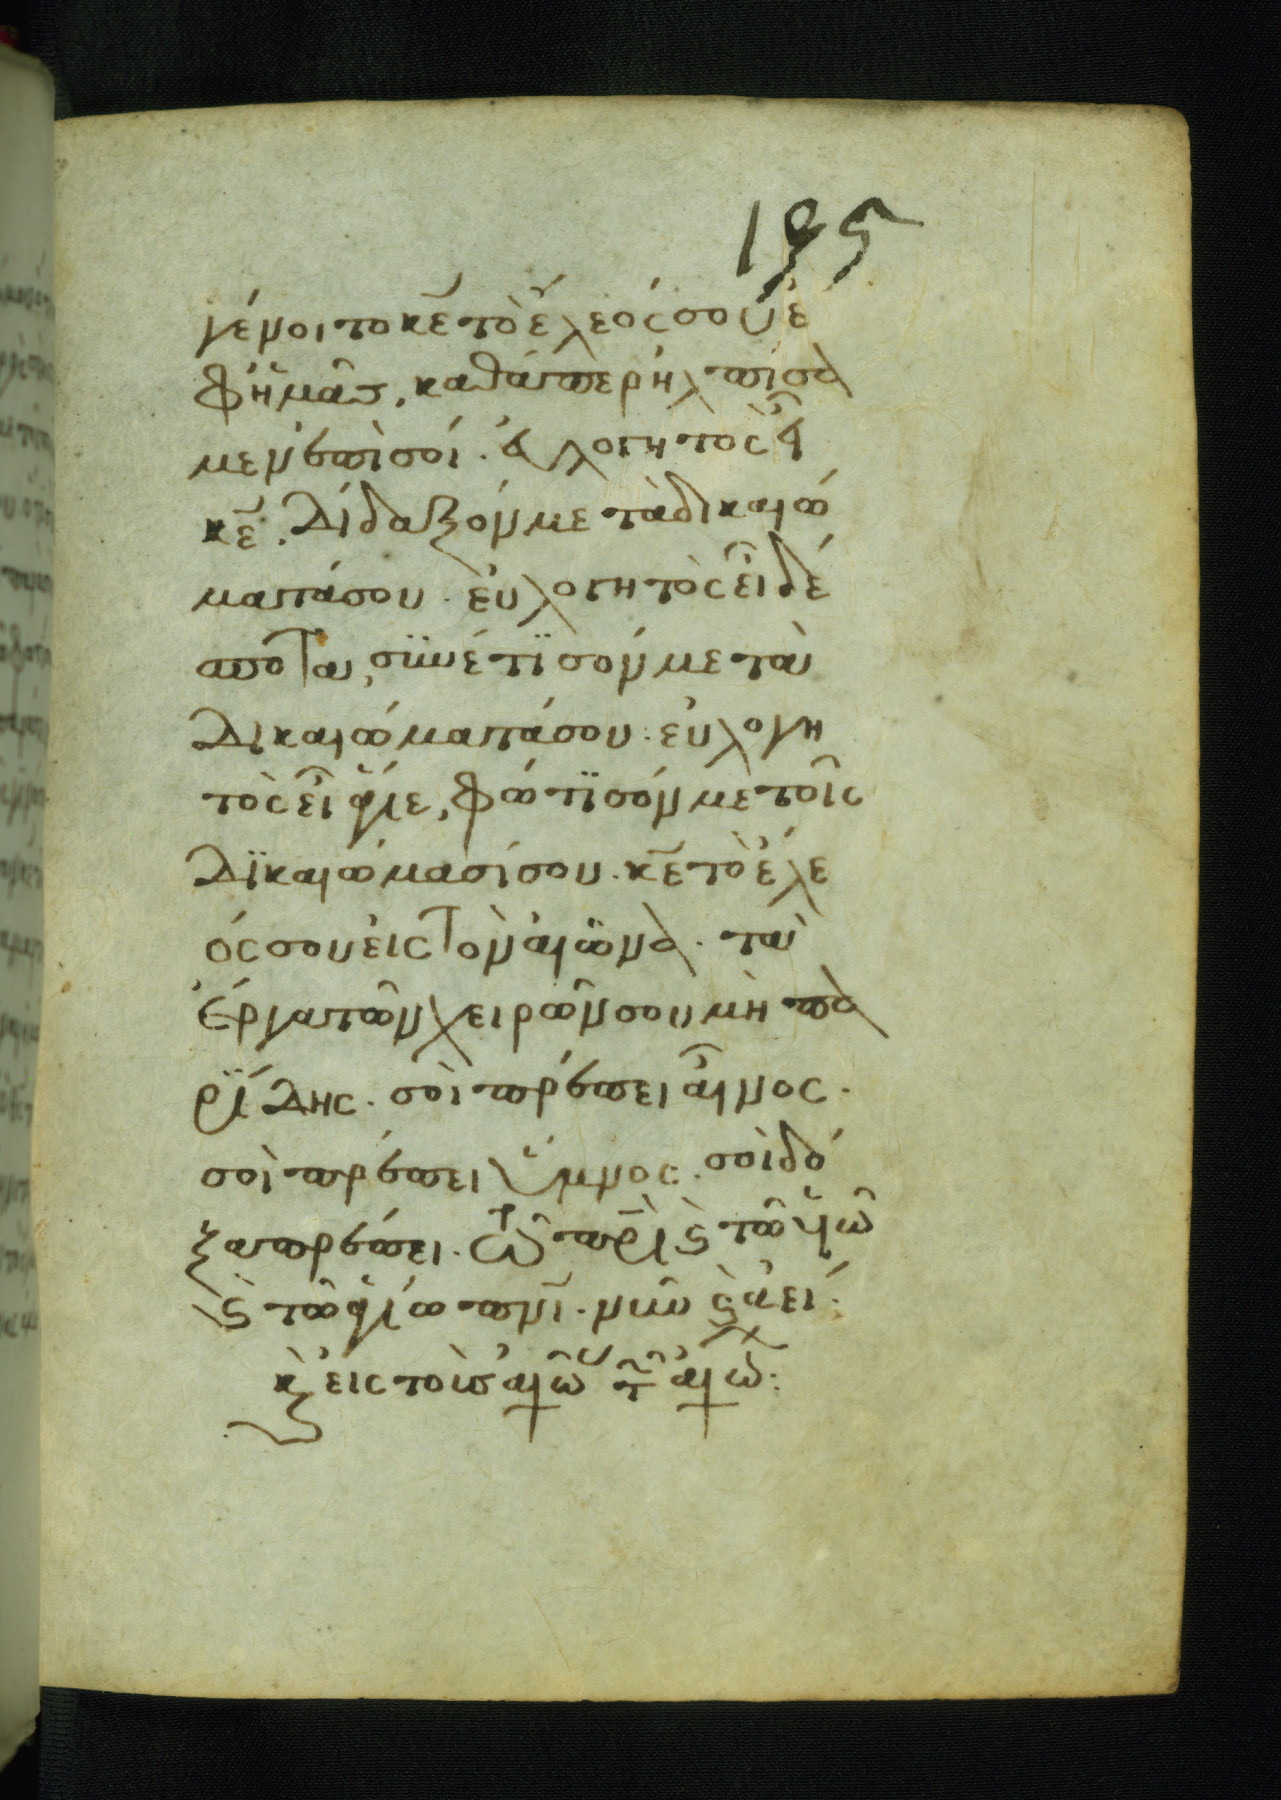 195
γένοιτο κε̅ τὸ ἔλεός σου ἐ
φ ἡμᾶς, καθάπερ ἠλπίσα
μεν ἐπί σοί. εὐλογητὸς εἶ
κε̅. δίδαξόν με τὰ δικαιώ
ματά σου. εὐλογητὸς εἶ δέ
σποτα, σϋνέτϊσόν με τὰ
δικαιώματά σου. εὐλογη
τὸς εἶ ἅγιε, φώτϊσόν με τοῖς
δϊκαιώμασί σου. κε̅ τὸ ἔλε
ός σου εἰς τὸν αἰῶνα. τὰ
ἔργα τῶν χειρῶν σου μὴ πα
ρΐδης. σοὶ πρέπει αἶνος.
σοὶ πρέπει ὕμνος. σοὶ δό
ξα πρέπει. τῶ πρι̅ ϗ τῶ υἱῶ
ϗ τῶ ἁγίω πνι̅. νῦν ϗ ἀεί.
ϗ εἰς τοὺς αἰῶ τῶν αἰώ: